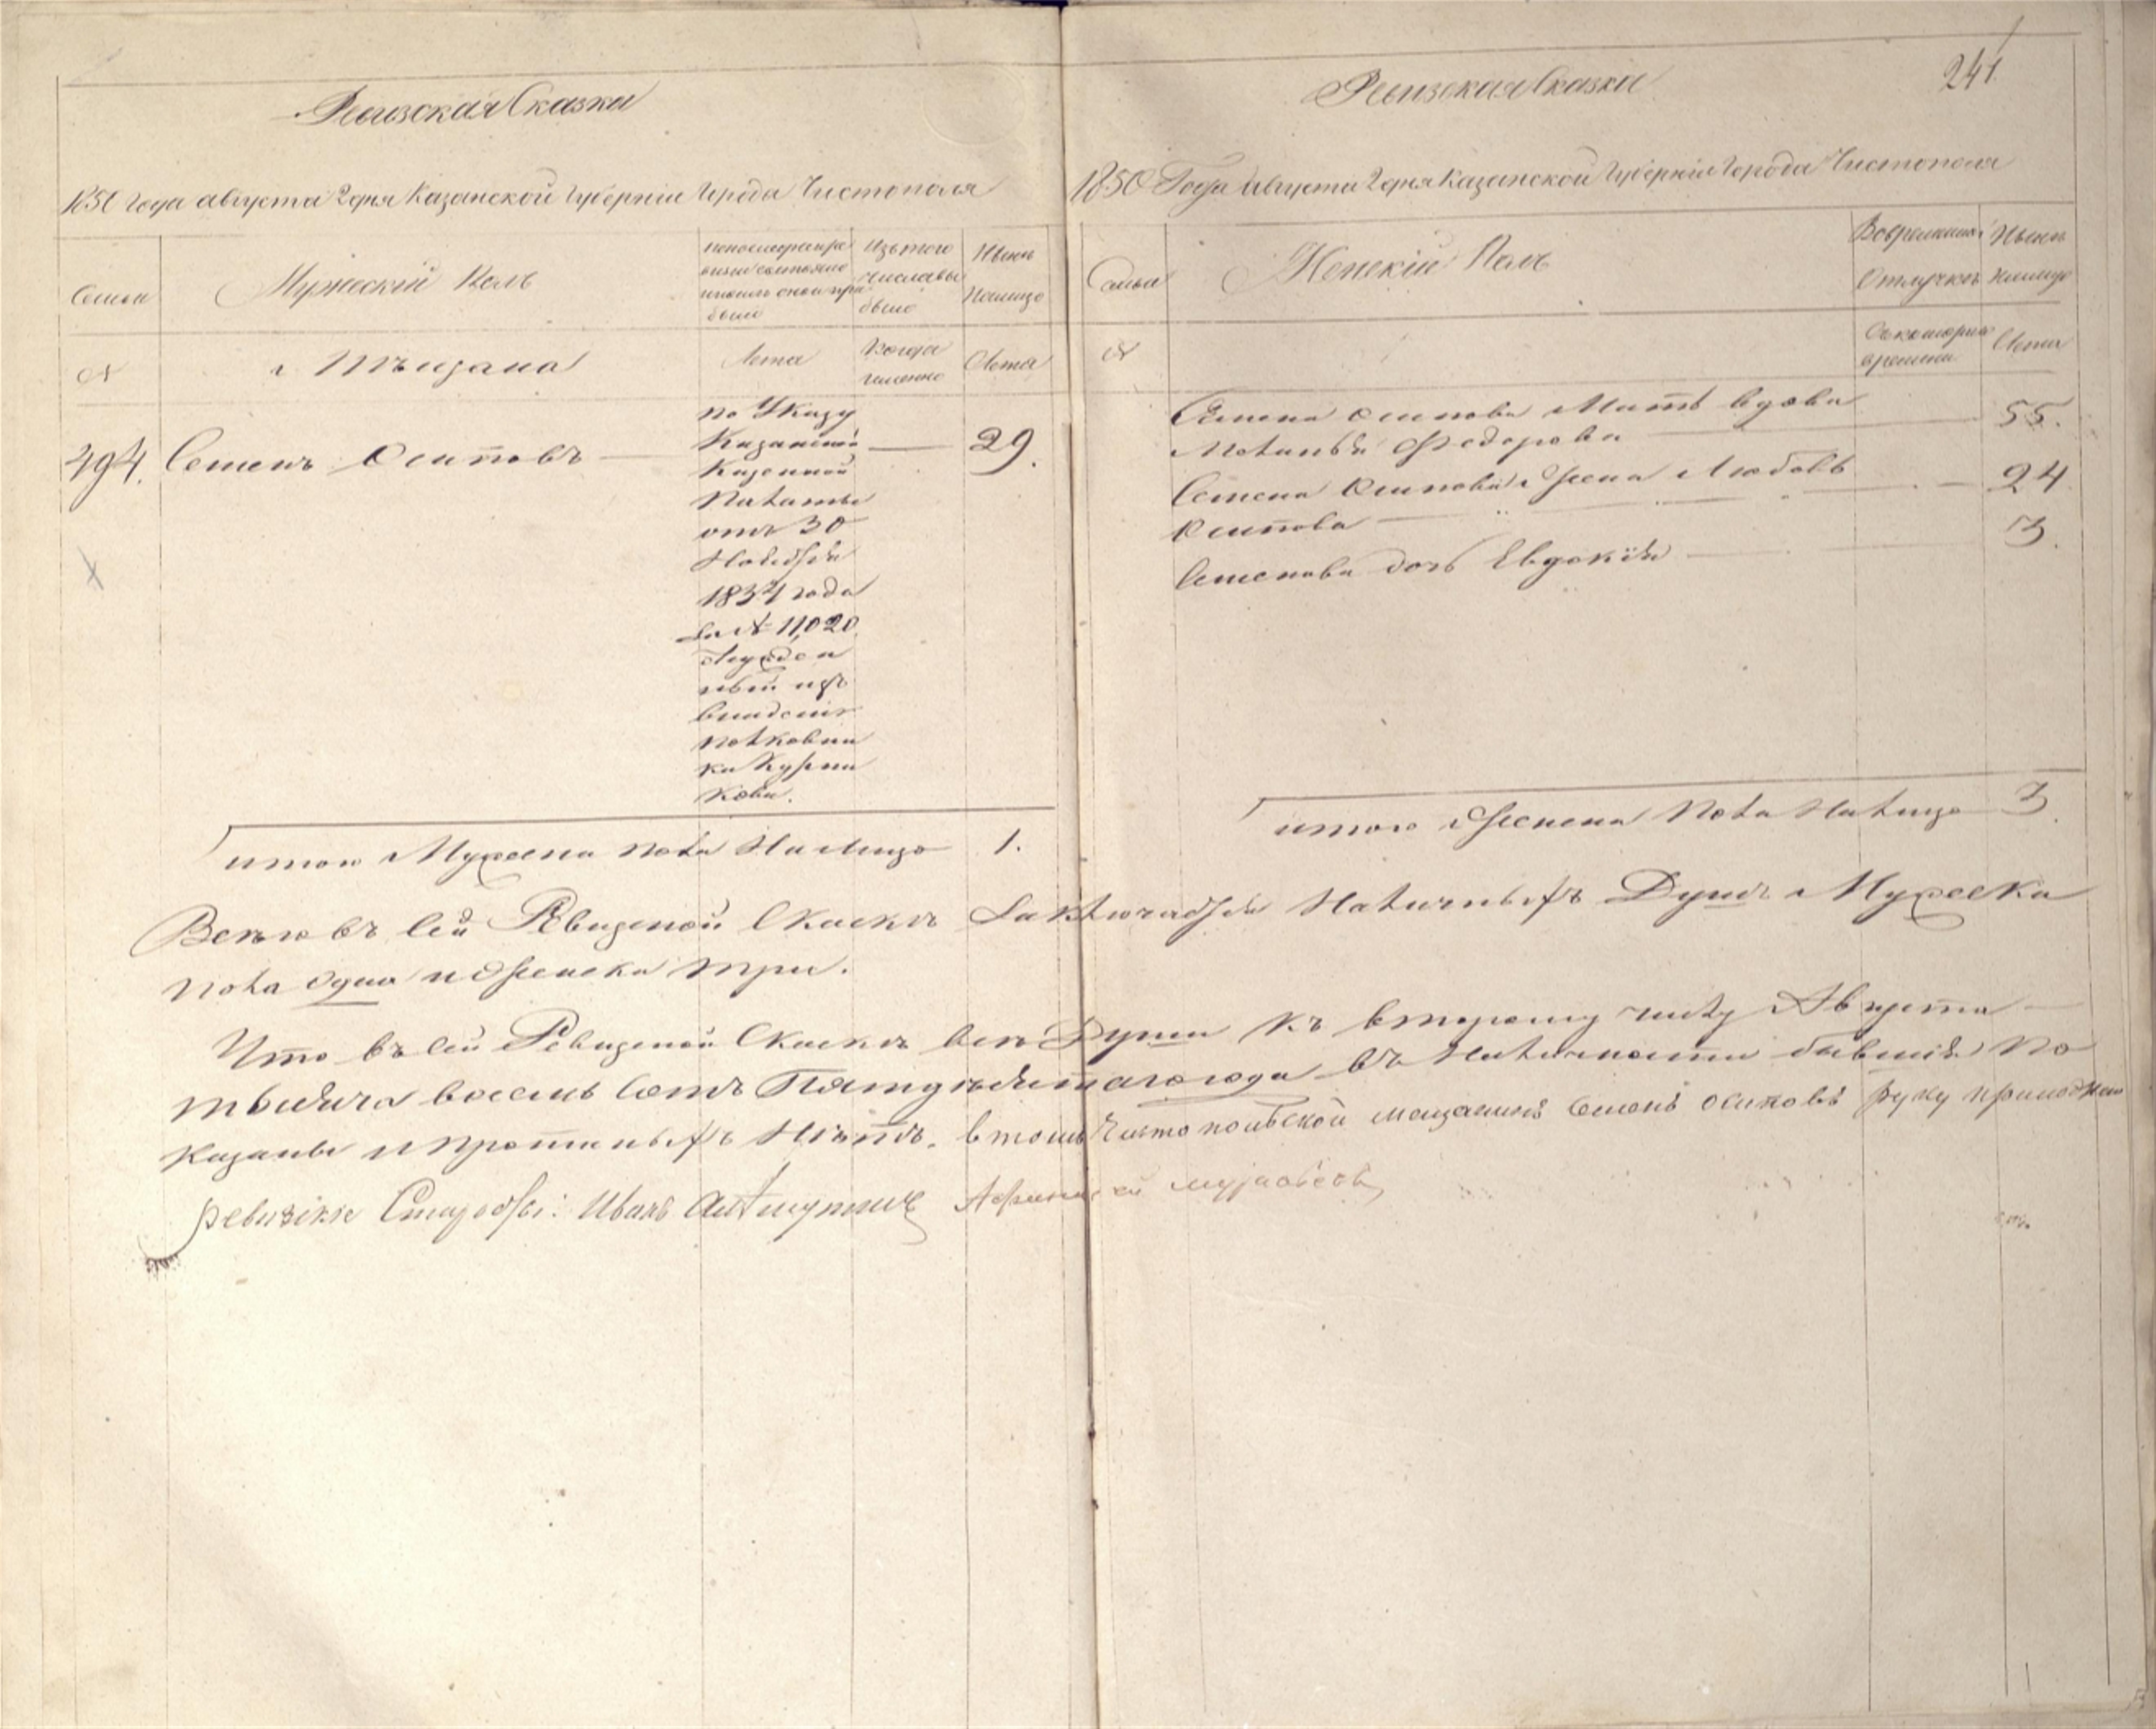 Ревизская Сказка
1850 года августа 2 дня Казанской Губернии Города Чистополя
Семьи
Мужеский Полъ
Изъ того
числа вы
было
Ныне
Налицо
№
Мѣщана
Лета
Когда
именно
Лета
494. Семенъ Осиповъ 29.
по Указу
Казанской
Казенной
Палаты
отъ 30
Ноября
183 года
за № 11,020
ный изъ
владения
полковни
ка
кова.
итого Мужеска пола На лицо 1.
Ревизская Сказка
241
1850 Года Августа 2 дня Казанской Губернии Города Чистополя
Семьи
Женский Полъ
Во временной
отлучке
Ныне
налицо
№
Съ которого
времени
Лета
Семена Осипова Мать вдова
Меланья Федорова 55.
Семена Осипова Жена Любовь
Осипова 24
Семенова дочь Евдокия 3.
итого Женска пола На лицо 3.
Всего въ сей Ревизской Скаске Заключается Наличныхъ Душъ Мужеска
пола одна и Женска три.
Что въ сей Ревизской Скаске все Души къ второму числу Августа
тысяча восемь сотъ Пятидесятаго года въ Наличности бывшия по
казаны и прописныхъ Нетъ. в томъ Чистопольской мещанинъ Семенъ Осиповъ руку приложилъ
Старосты: Иванъ